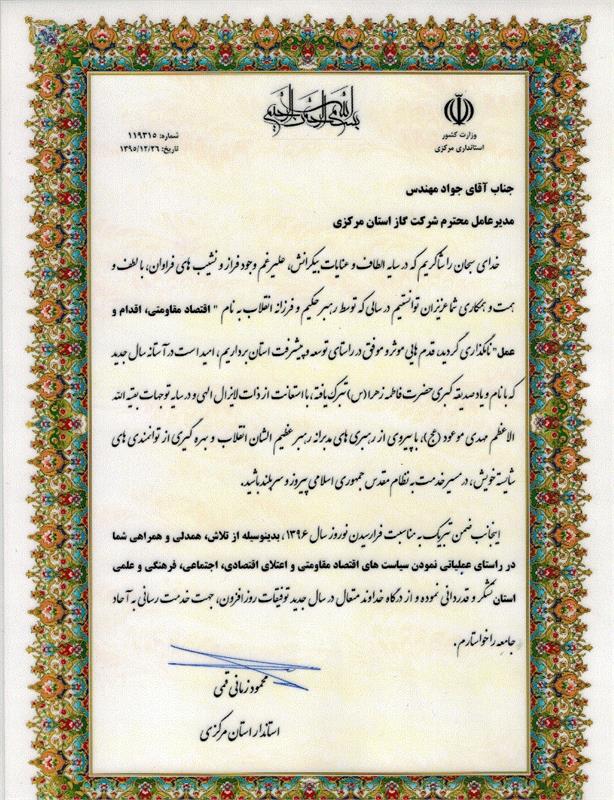 بسم الله الرحمن الرحیم
وزارت کشور
استانداری مرکزی
شماره: ۱۱۹۳۱۵
تاریخ: ۱۳۹۵/۱۲/۲۶
جناب آقای جواد مهندس
مدیرعامل محترم شرکت گاز استان مرکزی
خدای سبحان را شاکریم که در سایه الطاف و عنایات بیکرانش، علیرغم وجود فراز و نشیب های فراوان، با لطف و
همت و همکاری شما عزیزان توانستیم در سالی که توسط رهبر حکیم و فرزانه انقلاب به نام " اقتصاد مقاومتی، اقدام و
عمل" نامگذاری گردید، قدم هایی موثر و موفق در راستای توسعه و پیشرفت استان برداریم، امید است در آستانه سال جدید
که با نام و یاد صدیقه کبری حضرت فاطمه زهرا (س) تبرک یافته، با استعانت از ذات لایزال الهی و در سایه توجهات بقیه الله
الاعظم مهدی موعود (عج)، با پیروی از رهبری های مدبرانه رهبر عظیم الشان انقلاب و بهره گیری از توانمندی های
شایسته خویش، در مسیر خدمت به نظام مقدس جمهوری اسلامی پیروز و سربلند باشید.
اینجانب ضمن تبریک به مناسبت فرارسیدن نوروز سال ۱۳۹۶، بدینوسیله از تلاش، همدلی و همراهی شما
در راستای عملیاتی نمودن سیاست های اقتصاد مقاومتی و اعتلای اقتصادی، اجتماعی، فرهنگی و علمی
استان تشکر و قدردانی نموده و از درگاه خداوند متعال در سال جدید توفیقات روزافزون، جهت خدمت رسانی به آحاد
جامعه را خواستارم.
محمود زمانی قمی
استاندار استان مرکزی